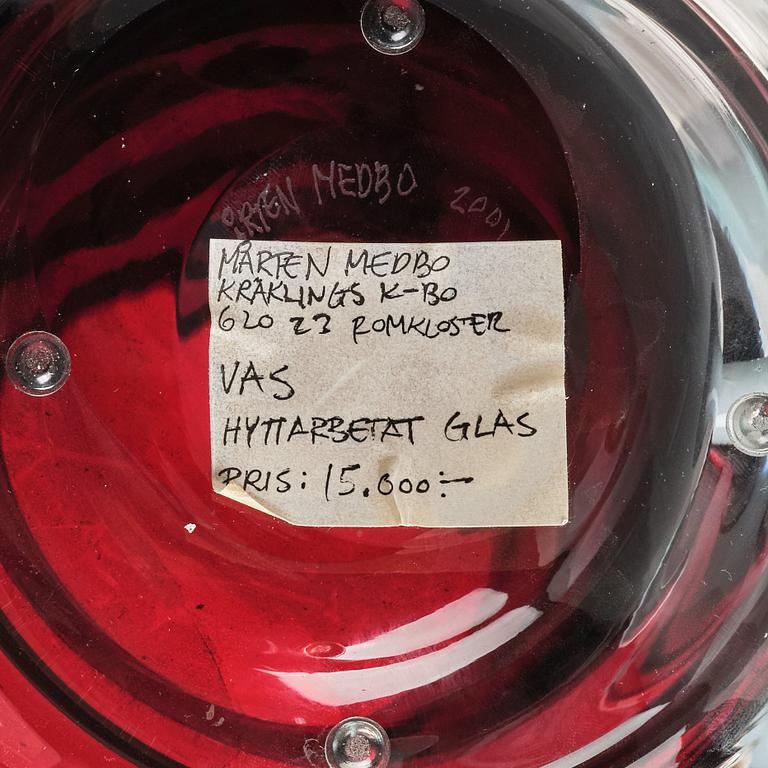 MÅRTEN MEDBO 2001
MÅRTEN MEDBO
KRÄKLINGS K-BO
620 23 ROMKLOSTER
VAS
HYTTARBETAT GLAS
PRIS: 15.000:-